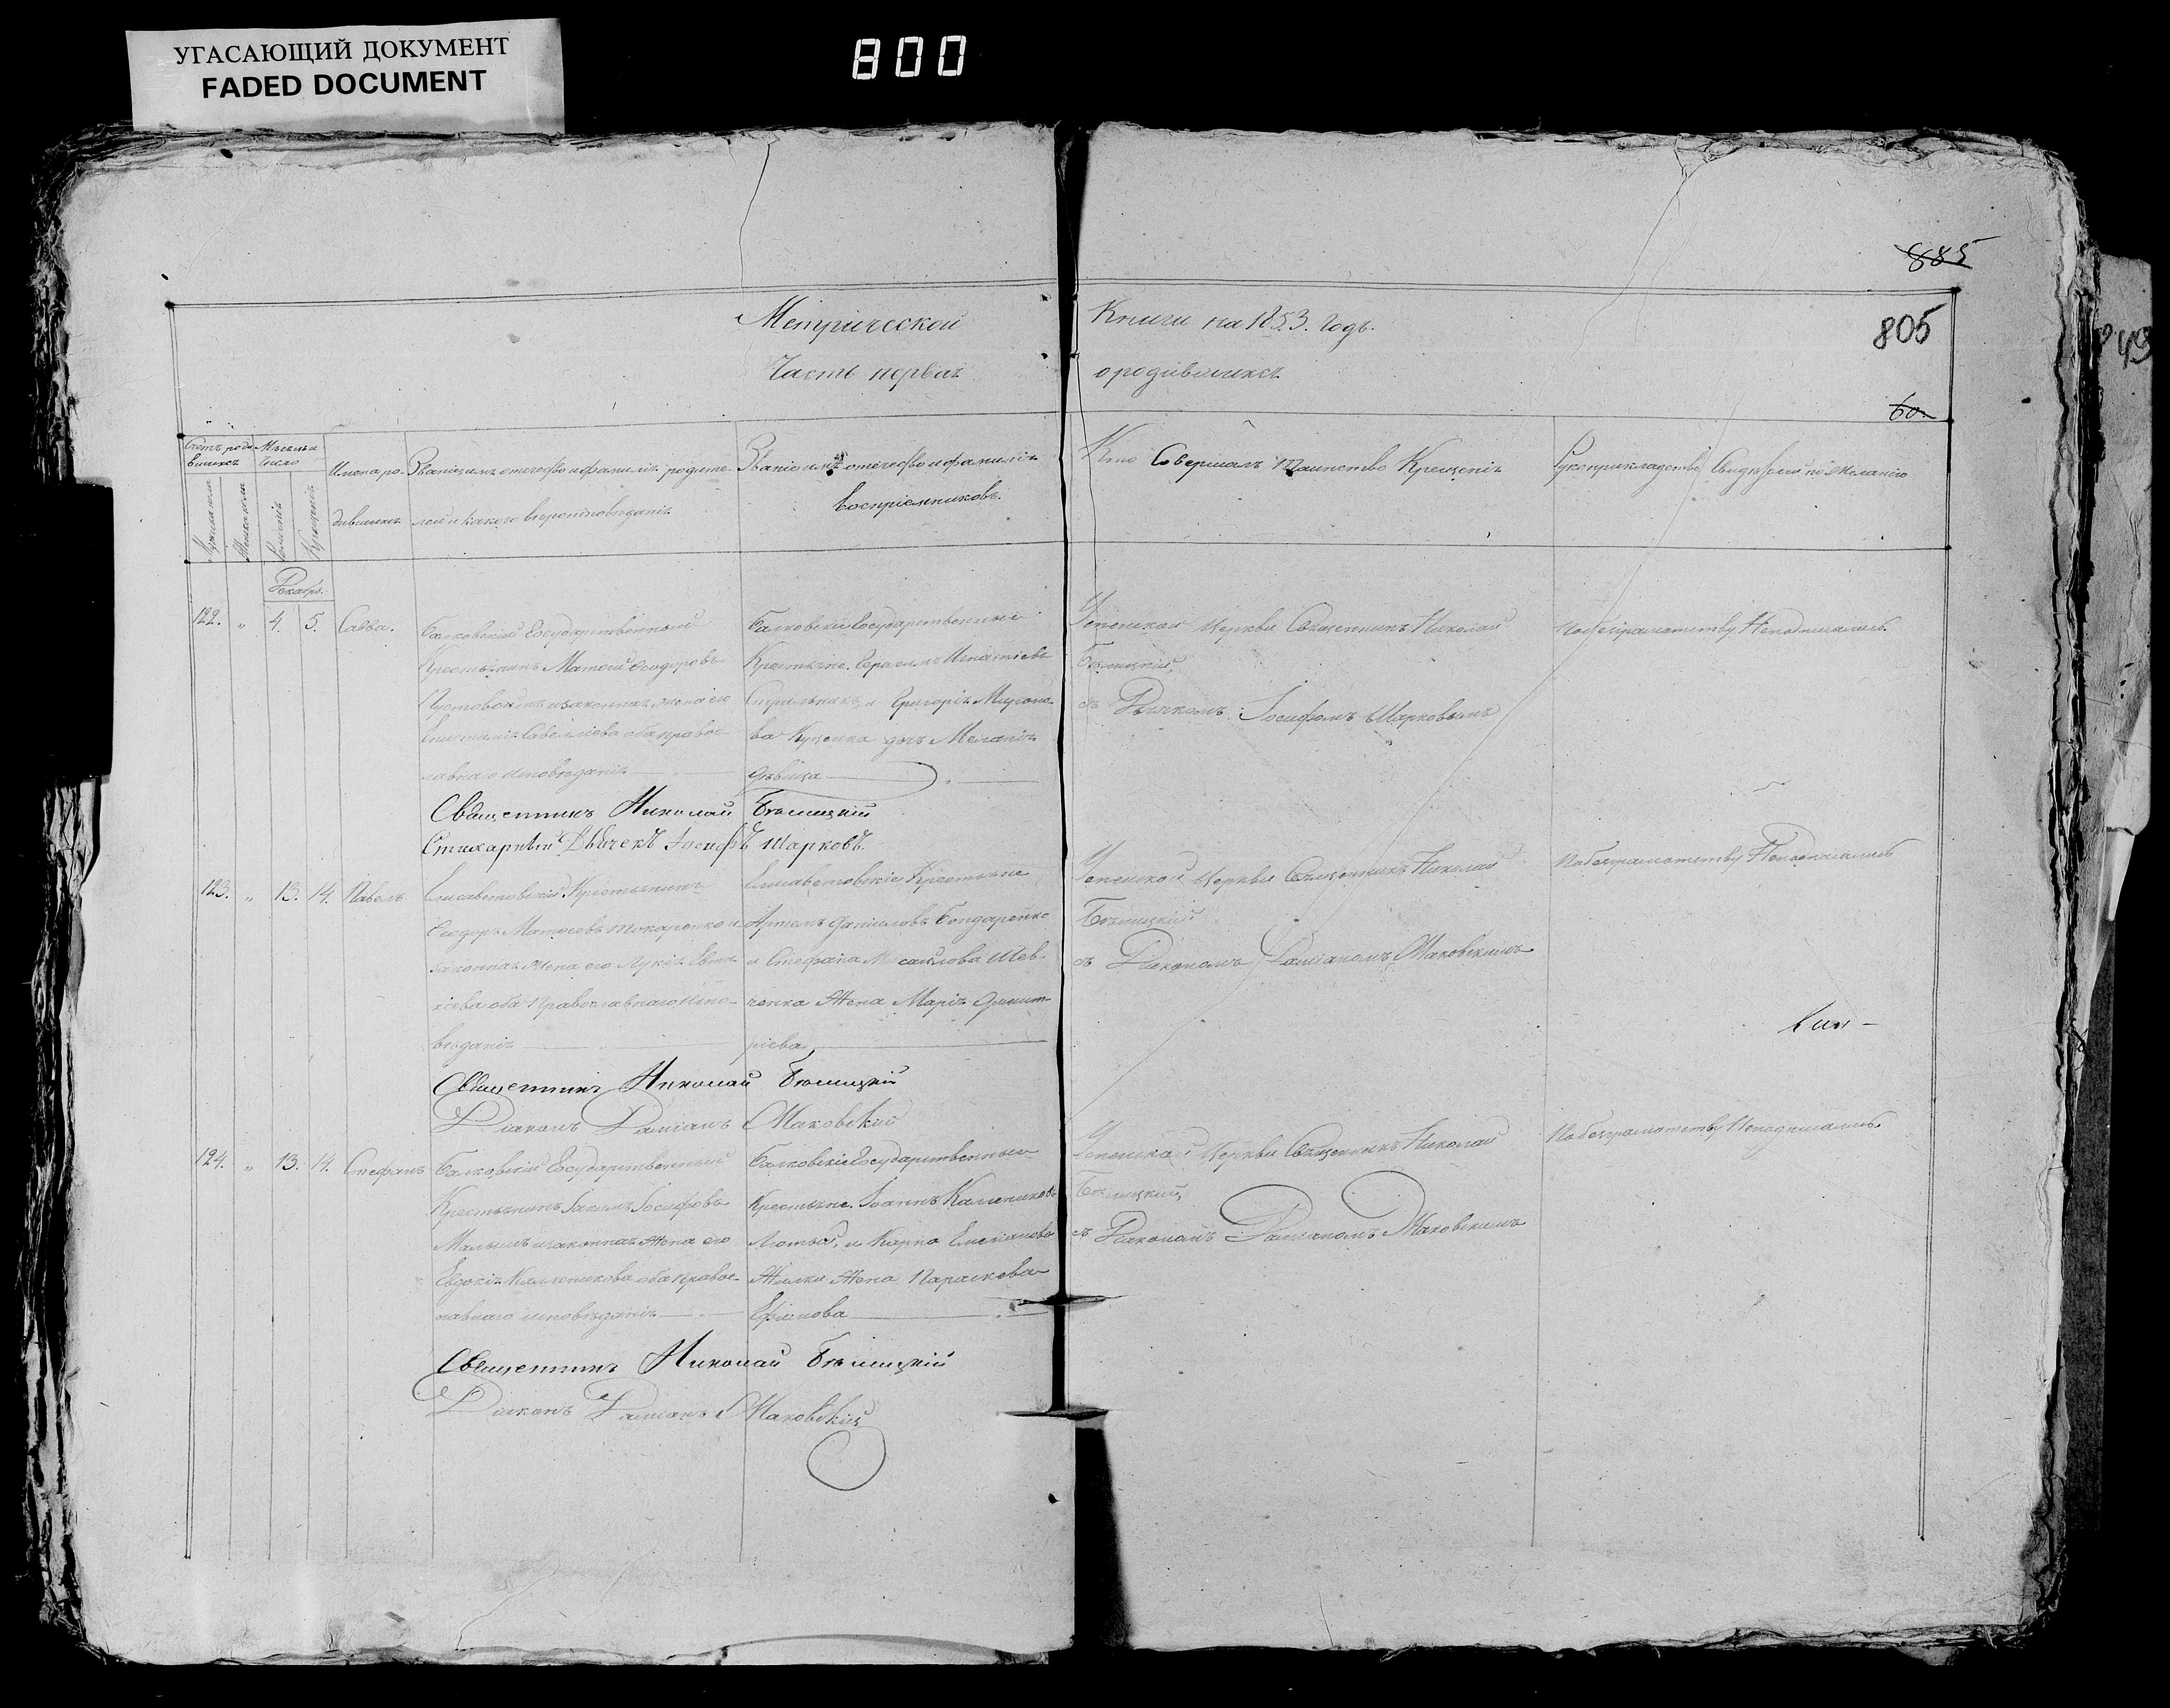 УГАСАЮЩИЙ ДОКУМЕНТ
FADED DOCUMENT
800
885
805
60.
Метрической Книги на 1853. годъ.
Часть первая о родившихся
Счетъ роди-
вшихся
Мѣсяцъ и
число
Мужеска пола
Женска пола
Рожденія
Крещенія
Имена ро-
дившихся
Званіе имя отечество и фамилія родите-
лей и какого вѣроисповѣданія
Званіе имя отечество и фамилія
воспріемниковъ.
Кто Совершалъ Таинство Крещенія
Рукоприкладство Свидѣтелей по Желанію
Декабрь.
122. " 4. 5. Савва.
Балковскій Государственный
Крестьянинъ Матѳей Ѳеодоровъ
и законная жена его
Савеліева оба правос-
лавнаго исповѣданія
Балковскіе Государственные
Крестьяне. Герасимъ Игнатіевъ
и Григорія Мироно-
ва Куценка дочь Меланія
дѣвица
Успенской Церкви Священникъ Николай
Бѣлицкій
съ Дьячкомъ Іосифомъ Шарковымъ
По безграмотству Неподписались.
Священникъ Николай Бѣлицкій
Стихарный Дьячекъ Іосифъ Шарковъ.
123. " 13. 14. Павелъ
Елисаветовскій Крестьянинъ
Ѳеодоръ Матѳеевъ Токаренко и
законная Жена его Лукія Евти-
хіева оба Православнаго Испо-
вѣданія
Елисаветовскіе Крестьяне
Артемъ Даніиловъ Бондаренко
и Стефана Михайлова Шев-
ченка Жена Марія Димит-
ріева
Успенской Церкви Священникъ Николай
Бѣлицкій
съ Діакономъ Даміаномъ Маковскимъ
По безграмотству Неподписались
Священникъ Николай Бѣлицкій
Діаконъ Даміанъ Маковскій
124. " 13. 14. Стефанъ
Балковскій Государственный
Крестьянинъ Іакимъ Іосифовъ
Малышъ и законная Жена его
Евдокія Каленикова оба Правос-
лавнаго исповѣданія
Балковскіе Государственные
Крестьяне. Іоаннъ Калениковъ
Лютый, и Карпа Емельянова
Жилки Жена Параскева
Ефимова
Успенской Церкви Священникъ Николай
Бѣлицкій
съ Діакономъ Даміаномъ Маковскимъ
По безграмотству Неподписались.
Священникъ Николай Бѣлицкій
Діаконъ Даміанъ Маковскій